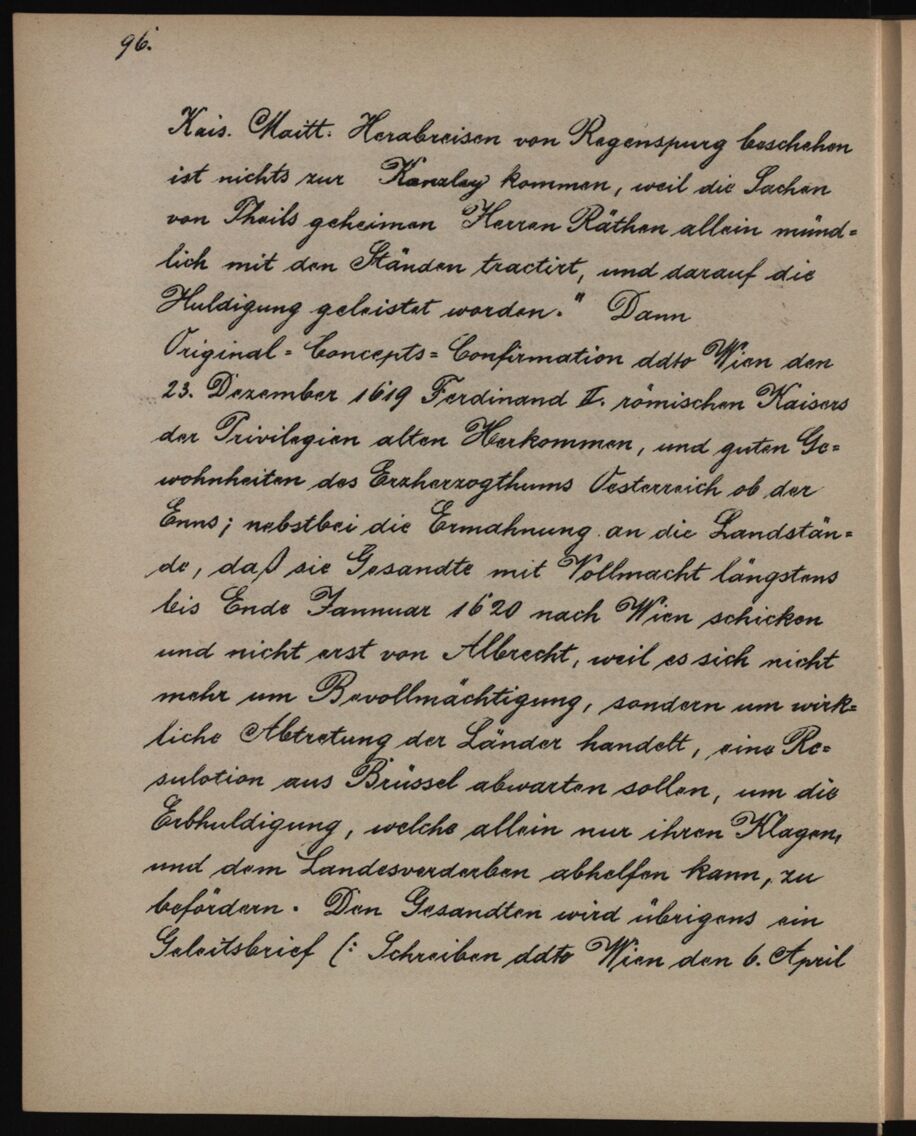 96.
Kais. Maitt. Herabreisen von Regenspurg beschehen
ist nichts zur Kanzley kommen, weil die Sachen
von Theils geheimen Herren Räthen allein münd=
lich mit den Ständen tractirt, und darauf die
Huldigung geleistet worden." Dann
Original=Concepts=Confirmation ddto Wien den
23. Dezember 1619 Ferdinand II. römischen Kaisers
der Privilegien alten Herkommen, und guten Ge=
wohnheiten des Erzherzogthums Oesterreich ob der
Enns; nebstbei die Ermahnung an die Landstän=
de, daß sie Gesandte mit Vollmacht längstens
bis Ende Jannuar 1620 nach Wien schicken
und nicht erst von Albrecht, weil es sich nicht
mehr um Bevollmächtigung, sondern um wirk=
liche Abtretung der Länder handelt, eine Re=
sulotion aus Brüssel abwarten sollen, um die
Erbhuldigung, welche allein nur ihren Klagen,
und dem Landesverderben abhelfen kann, zu
befördern. Den Gesandten wird übrigens ein
Geleitsbrief (: Schreiben ddto Wien den 6. April